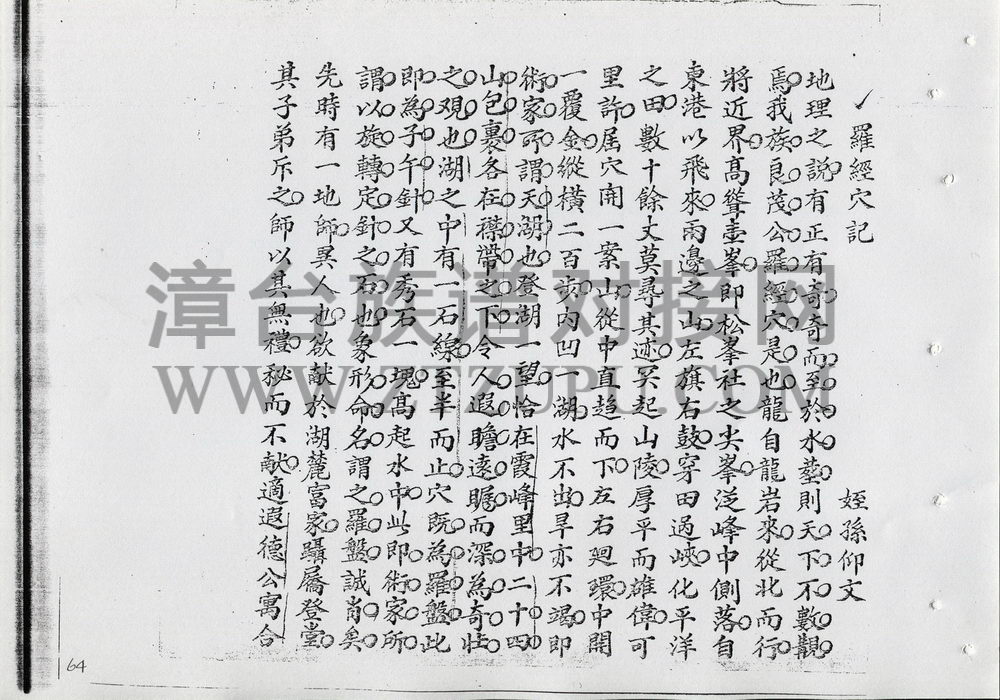 羅經穴記
姪孫仰文
地理之說有正有奇奇而至於水塟則天下不數覯
焉我族良茂公羅經穴是也龍自龍岩來從北而行
將近界高聳壼峯即松峯社之尖峯泛峰中側落自
東港以飛來兩邊之山左旗右鼓穿田過峽化平洋
之田數十餘丈莫尋其迹冥起山陵厚平而雄偉可
里許屈穴開一案山從中直趨而下左右廻環中開
一覆金縱橫二百步內凹一湖水不出旱亦不竭即
術家所謂天湖也登湖一望恰在霞峰里中二十四
山包裹各在襟帶之下令人遐瞻遠矚而深為奇壯
之观也湖之中有一石線至半而止穴既為羅盤此
即為子午針又有秀石一塊高起水中此即術家所
謂以旋轉定針之石也象形命名謂之羅盤誠肖矣
先時有一地師異人也欲献於湖麓富家躡屩登堂
其子弟斥之師以其無禮秘而不献適遐德公寓合
漳台族谱对接网
WWW.ZTZUPU.COM
64